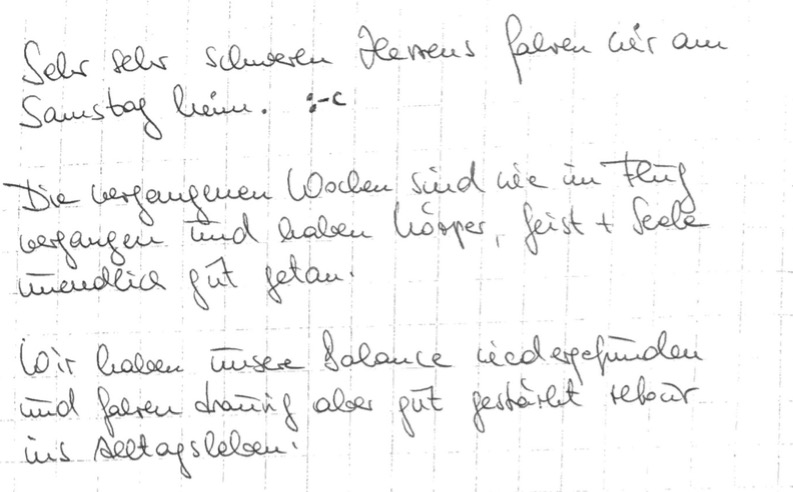 Sehr sehr schweren Herzens fahren wir am
Samstag heim. :-c
Die vergangenen Wochen sind wie im Flug
vergangen und haben Körper, Geist + Seele
unendlich gut getan.
Wir haben unsere Balance wiedergefunden
und fahren traurig aber gut gestärkt retour
ins Alltagsleben.